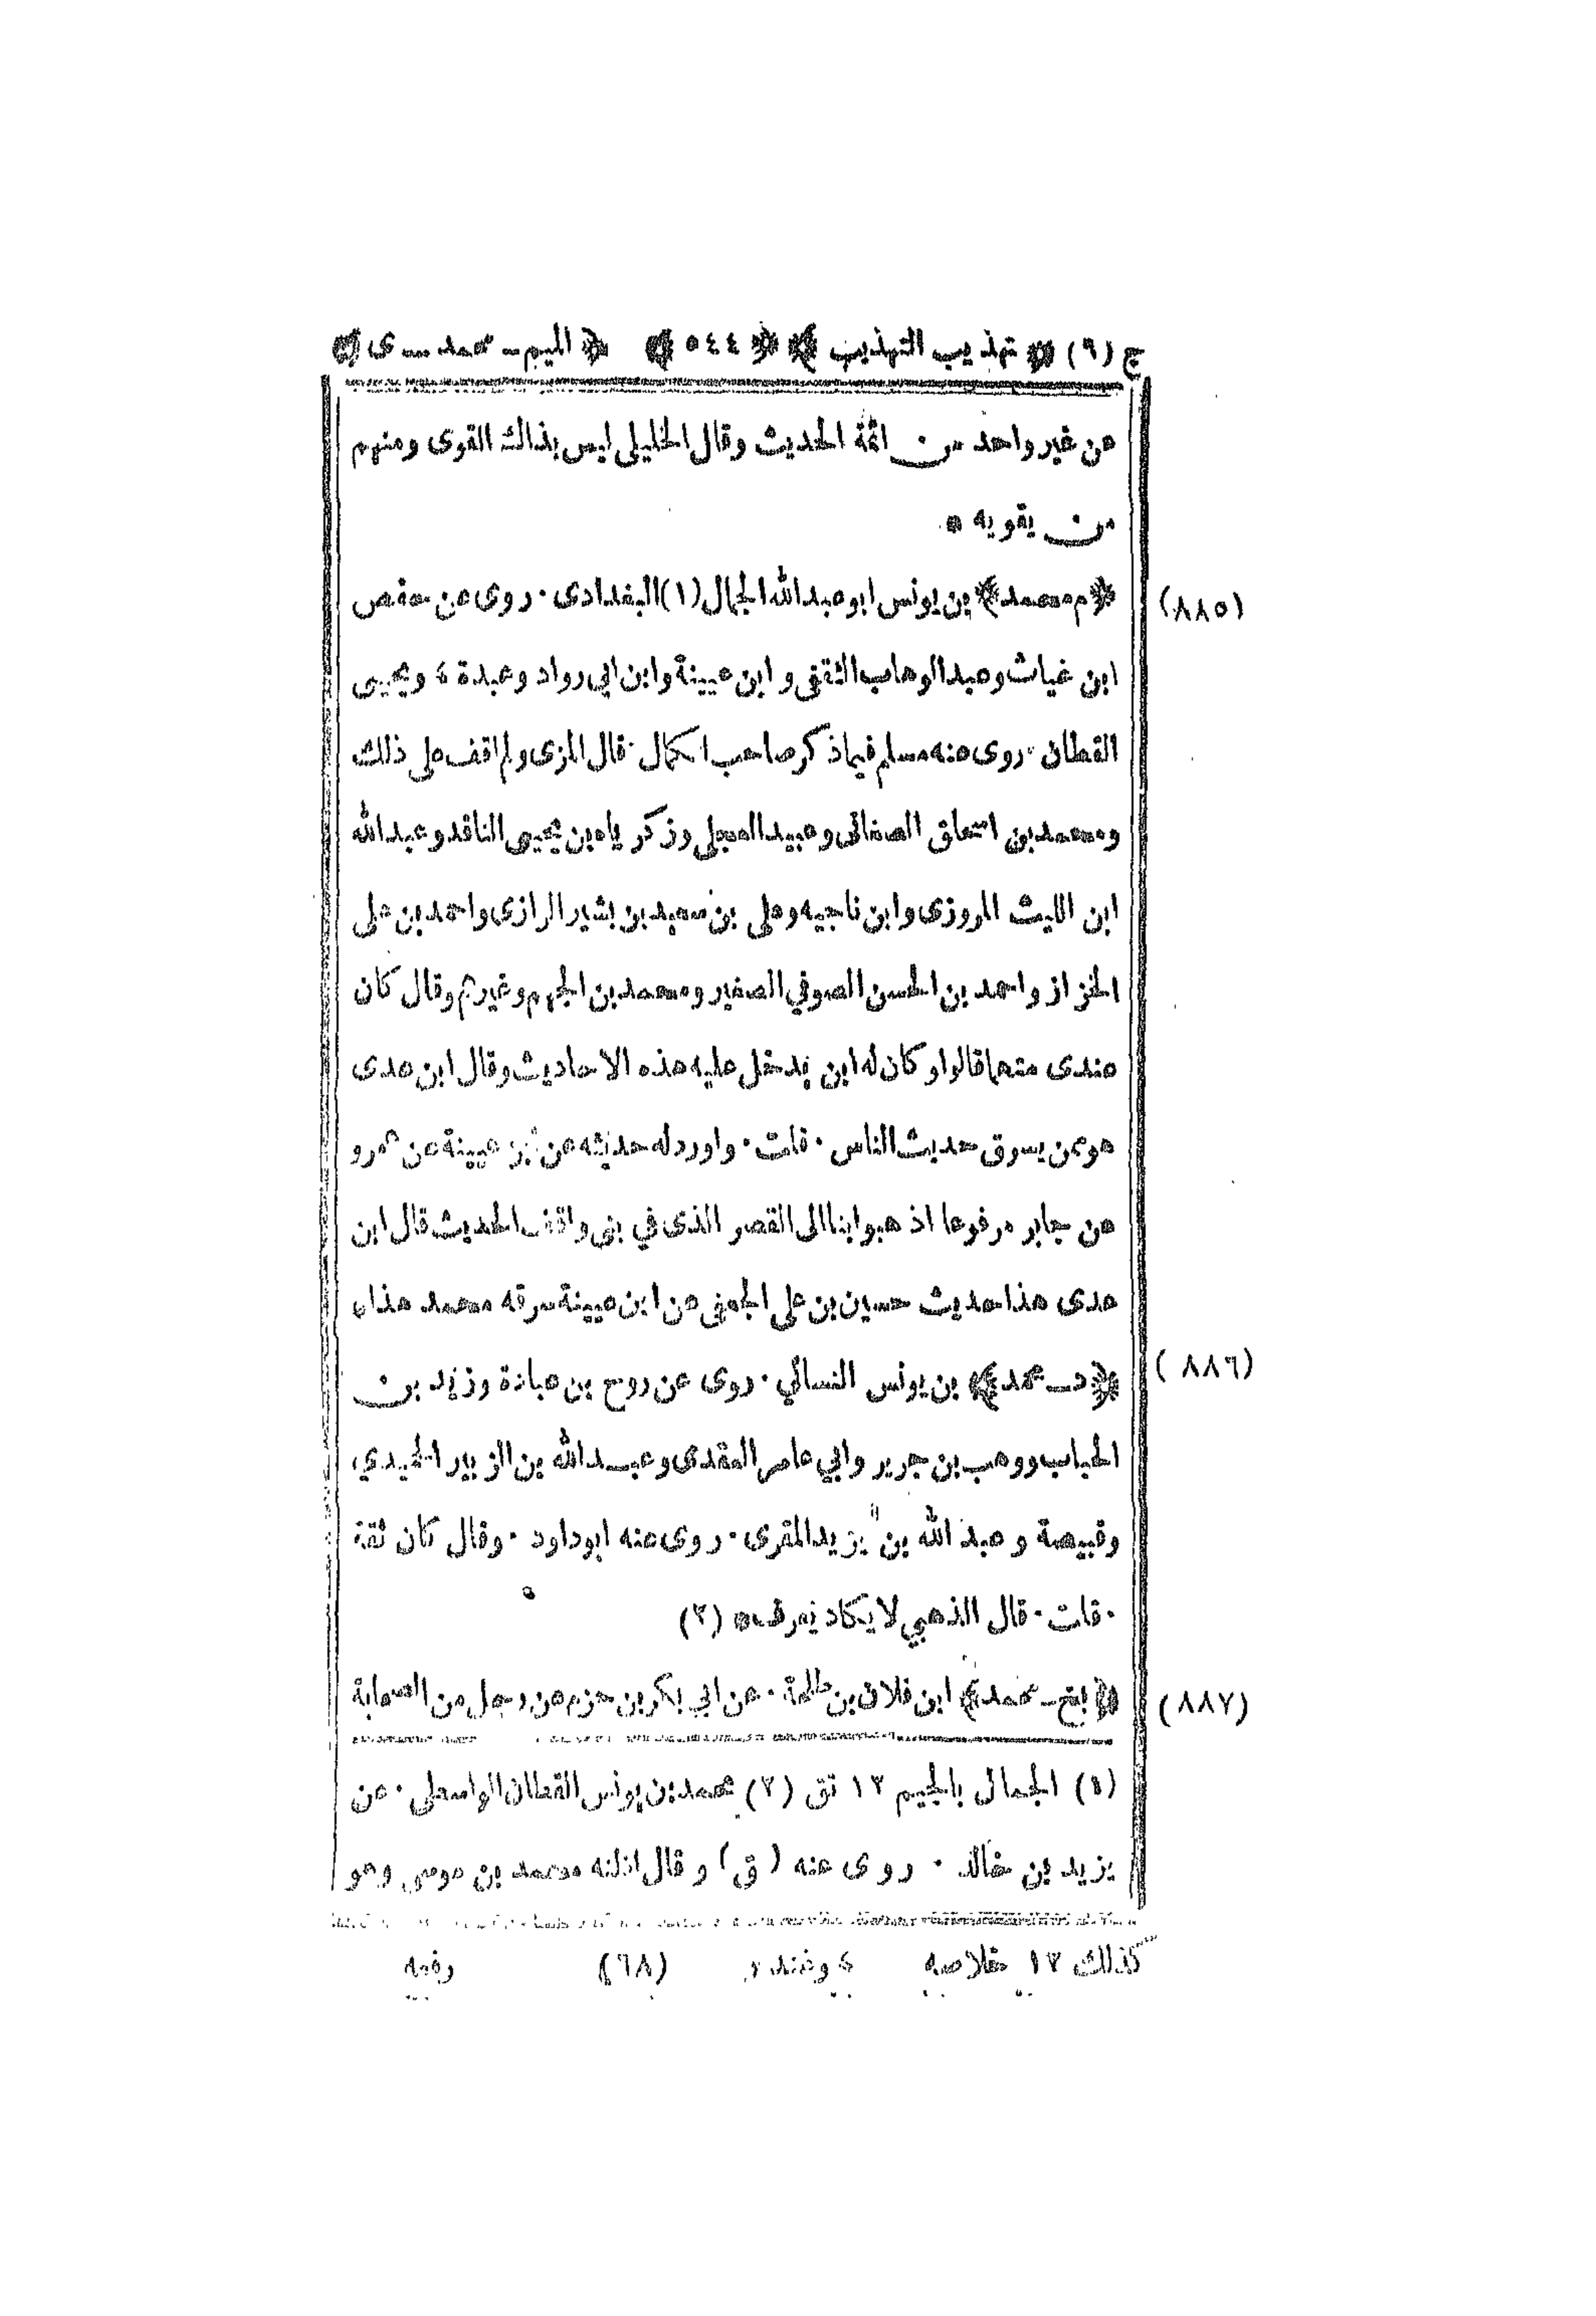 ج (٩) ﴿ تهذيب التهذيب ﴾ ﴿ ٥٤٤ ﴾ ﴿ الميم - محمد - ى ﴾
عن غير واحد من ائمة الحديث وقال الخليلى ليس بذاك القوى ومنهم
من يقويه *
(٨٨٥) ﴿ م محمد ﴾ بن يونس ابو عبد الله الجمال (١) البغدادى · روى عن حفص
ابن غياث وعبد الوهاب الثقفى و ابن عيينة وابن ابي رواد وعبدة ، ويحيى
القطان · روى عنه مسلم فيما ذكر صاحب الكمال · قال المزى ولم اقف على ذلك
ومحمد بن اسحاق الصغانى وعبيد العجلى وزكرياء بن يحيى الناقد وعبد الله
ابن الليث المروزى وابن ناجيه وعلى بن سعيد بن بشير الرازى واحمد بن على
الخزاز واحمد بن الحسن الصوفي الصغير ومحمد بن الجهم وغيرهم وقال كان
عندى متهما قالوا وكان له ابن يدخل عليه هذه الاحاديث وقال ابن عدى
هو ممن يسرق حديث الناس · قلت · واورد له حديثه عن ابن عيينة عن عمرو
عن جابر مرفوعا اذهبوا بنا الى القصر الذى في بنى واقف الحديث قال ابن
عدى هذا حديث حسين بن على الجعفى عن ابن عيينة سرقه محمد هذا *
(٨٨٦) ﴿ د - محمد ﴾ بن يونس النسائي · روى عن روح بن عبادة وزيد بن
الحباب ووهب بن جرير وابي عامر العقدى وعبد الله بن الزبير الحميدي
وقبيصة و عبد الله بن يزيد المقرى · روى عنه ابو داود · وقال كان ثقة
· قلت · قال الذهبي لا يكاد يعرف * (٢)
(٨٨٧) ﴿ بخ - محمد ﴾ ابن فلان بن طلحة · عن ابي بكر بن حزم عن رجل من الصحابة
(١) الجمال بالجيم ١٢ تق (٢) محمد بن يونس القطان الواسطى · عن
يزيد بن خالد · روى عنه (ق) و قال اظنه محمد بن موسى وهو
كذلك ١٢ خلاصه (٦٨) رفعه